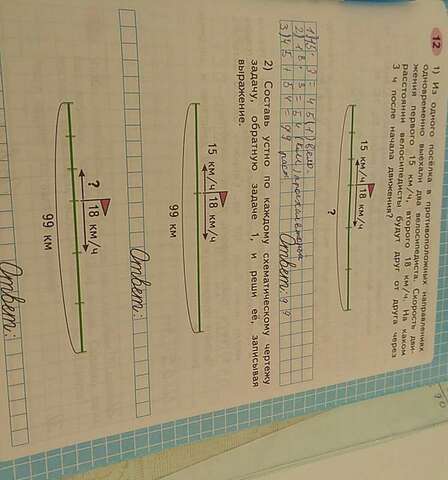 12
1) Из одного посёлка в противоположных направлениях
одновременно выехали два велосипедиста. Скорость дви-
жения первого 15 км/ч, второго 18 км/ч. На каком
расстоянии велосипедисты будут друг от друга через
3 ч после начала движения?
15 км/ч 18 км/ч
?
3 = 45 (
2) 18 · 3 = 54 (км) проехал второй
3) 45 + 54 = 99 расст
Ответ: 99
2) Составь устно по каждому схематическому чертежу
задачу, обратную задаче 1, и реши её, записывая
выражение.
15 км/ч 18 км/ч
99 км
Ответ:
? 18 км/ч
99 км
Ответ: